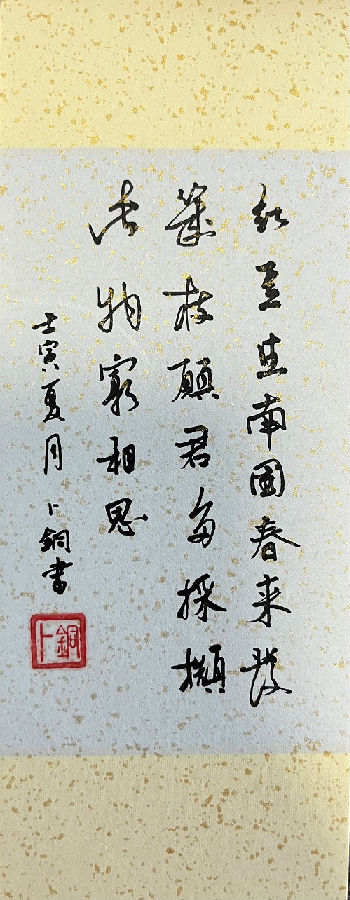 紅豆生南国春来發
幾枝願君多採擷
此物最相思
壬寅夏月 卜銅書
卜銅